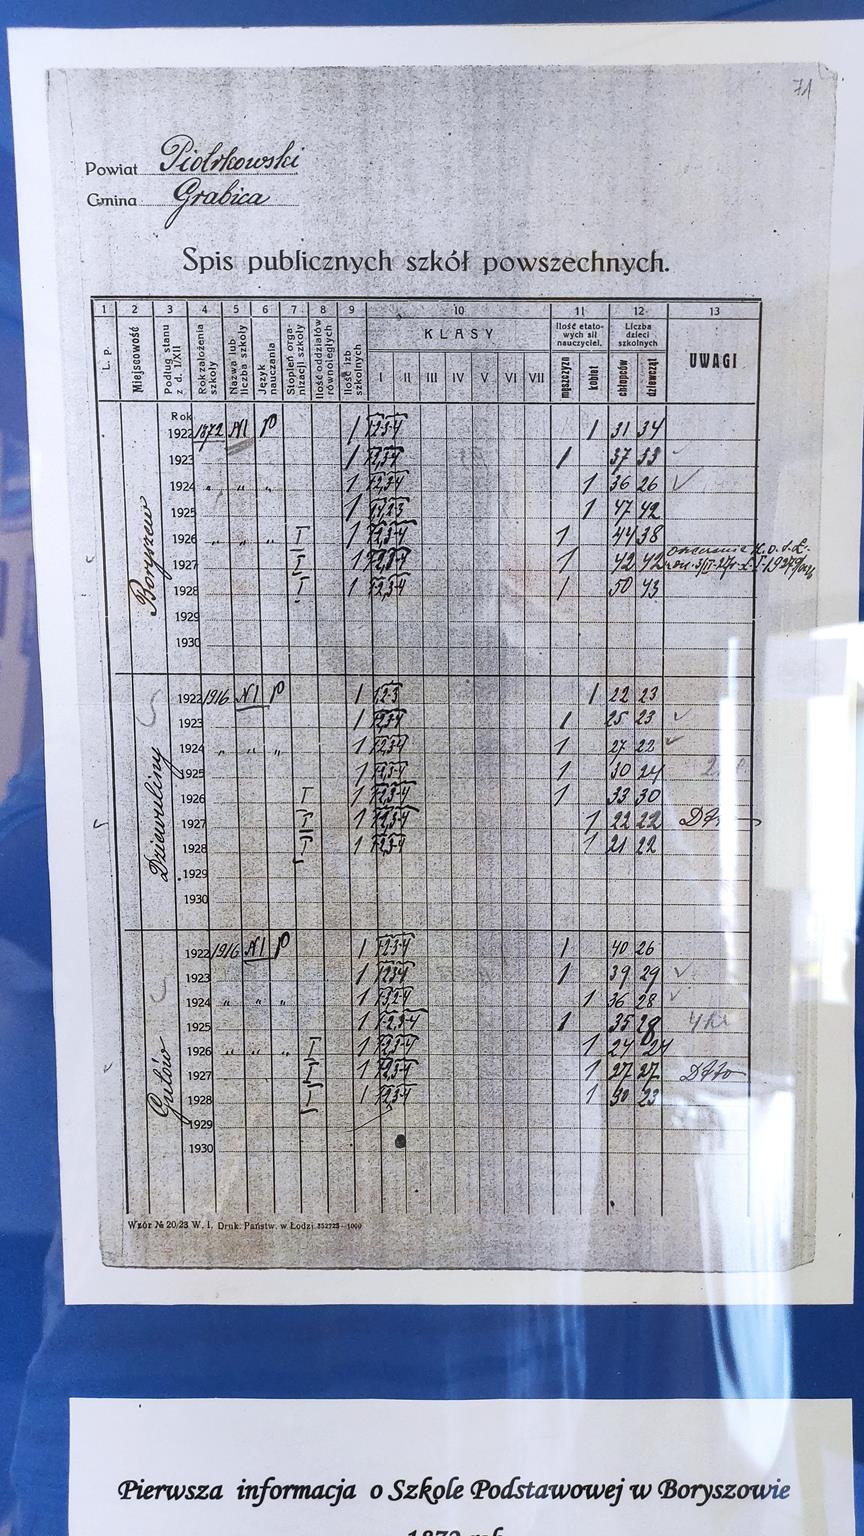 71
Powiat Piotrkowski
Gmina Grabica
Spis publicznych szkół powszechnych.
1 2 3 4 5 6 7 8 9 10 11 12 13
L. p.
Miejscowość
Podług stanu z d. 1/XII
Rok założenia szkoły
Nazwa lub liczba szkoły
Język nauczania
Stopień organizacji szkoły
Ilość oddziałów równoległych
Ilość izb szkolnych
KLASY
I II III IV V VI VII
Ilość etatowych sił nauczyciel.
mężczyzn
kobiet
Liczba dzieci szkolnych
chłopców
dziewcząt
UWAGI
Boryszew
Rok
1922 1872 N1 p 1 1 2 3 4 1 31 34
1923 1 1 2,3 4 1 37 33
1924 " " " 1 1 2,3 4 1 36 26
1925 1 1 47 42
1926 " " " I 1 1 2,3-4 1 44 38
1927 I 1 1 2,3-4 1 42 42
1928 I 1 1 2,3-4 1 50 43
1929
1930
Dziewuliny
1922 1916 N1 p 1 1,2-3 1 22 23
1923 1 1 2,3-4 1 25 23
1924 " " " 1 1 2,3 4 1 27 22
1925 1 1 2,3-4 1 30 24
1926 I 1 1 2,3-4 1 33 30
1927 I 1 1 2,3-4 1 22 22
1928 I 1 1 2,3-4 1 21 22
1929
1930
Gutów
1922 1916 N1 p 1 1 2 3-4 1 40 26
1923 1 1 2 3 4 1 39 29
1924 " " " 1 1 36 28
1925 1 1-2,3-4 1 35 28
1926 " " " I 1 1 2,3-4 1 24 24
1927 I 1 1 2,3-4 1 27 27
1928 I 1 1 2,3 4 1 30 23
1929
1930
Wzór № 20/23 W. I. Druk. Państw. w Łodzi 352723—1000
Pierwsza informacja o Szkole Podstawowej w Boryszowie